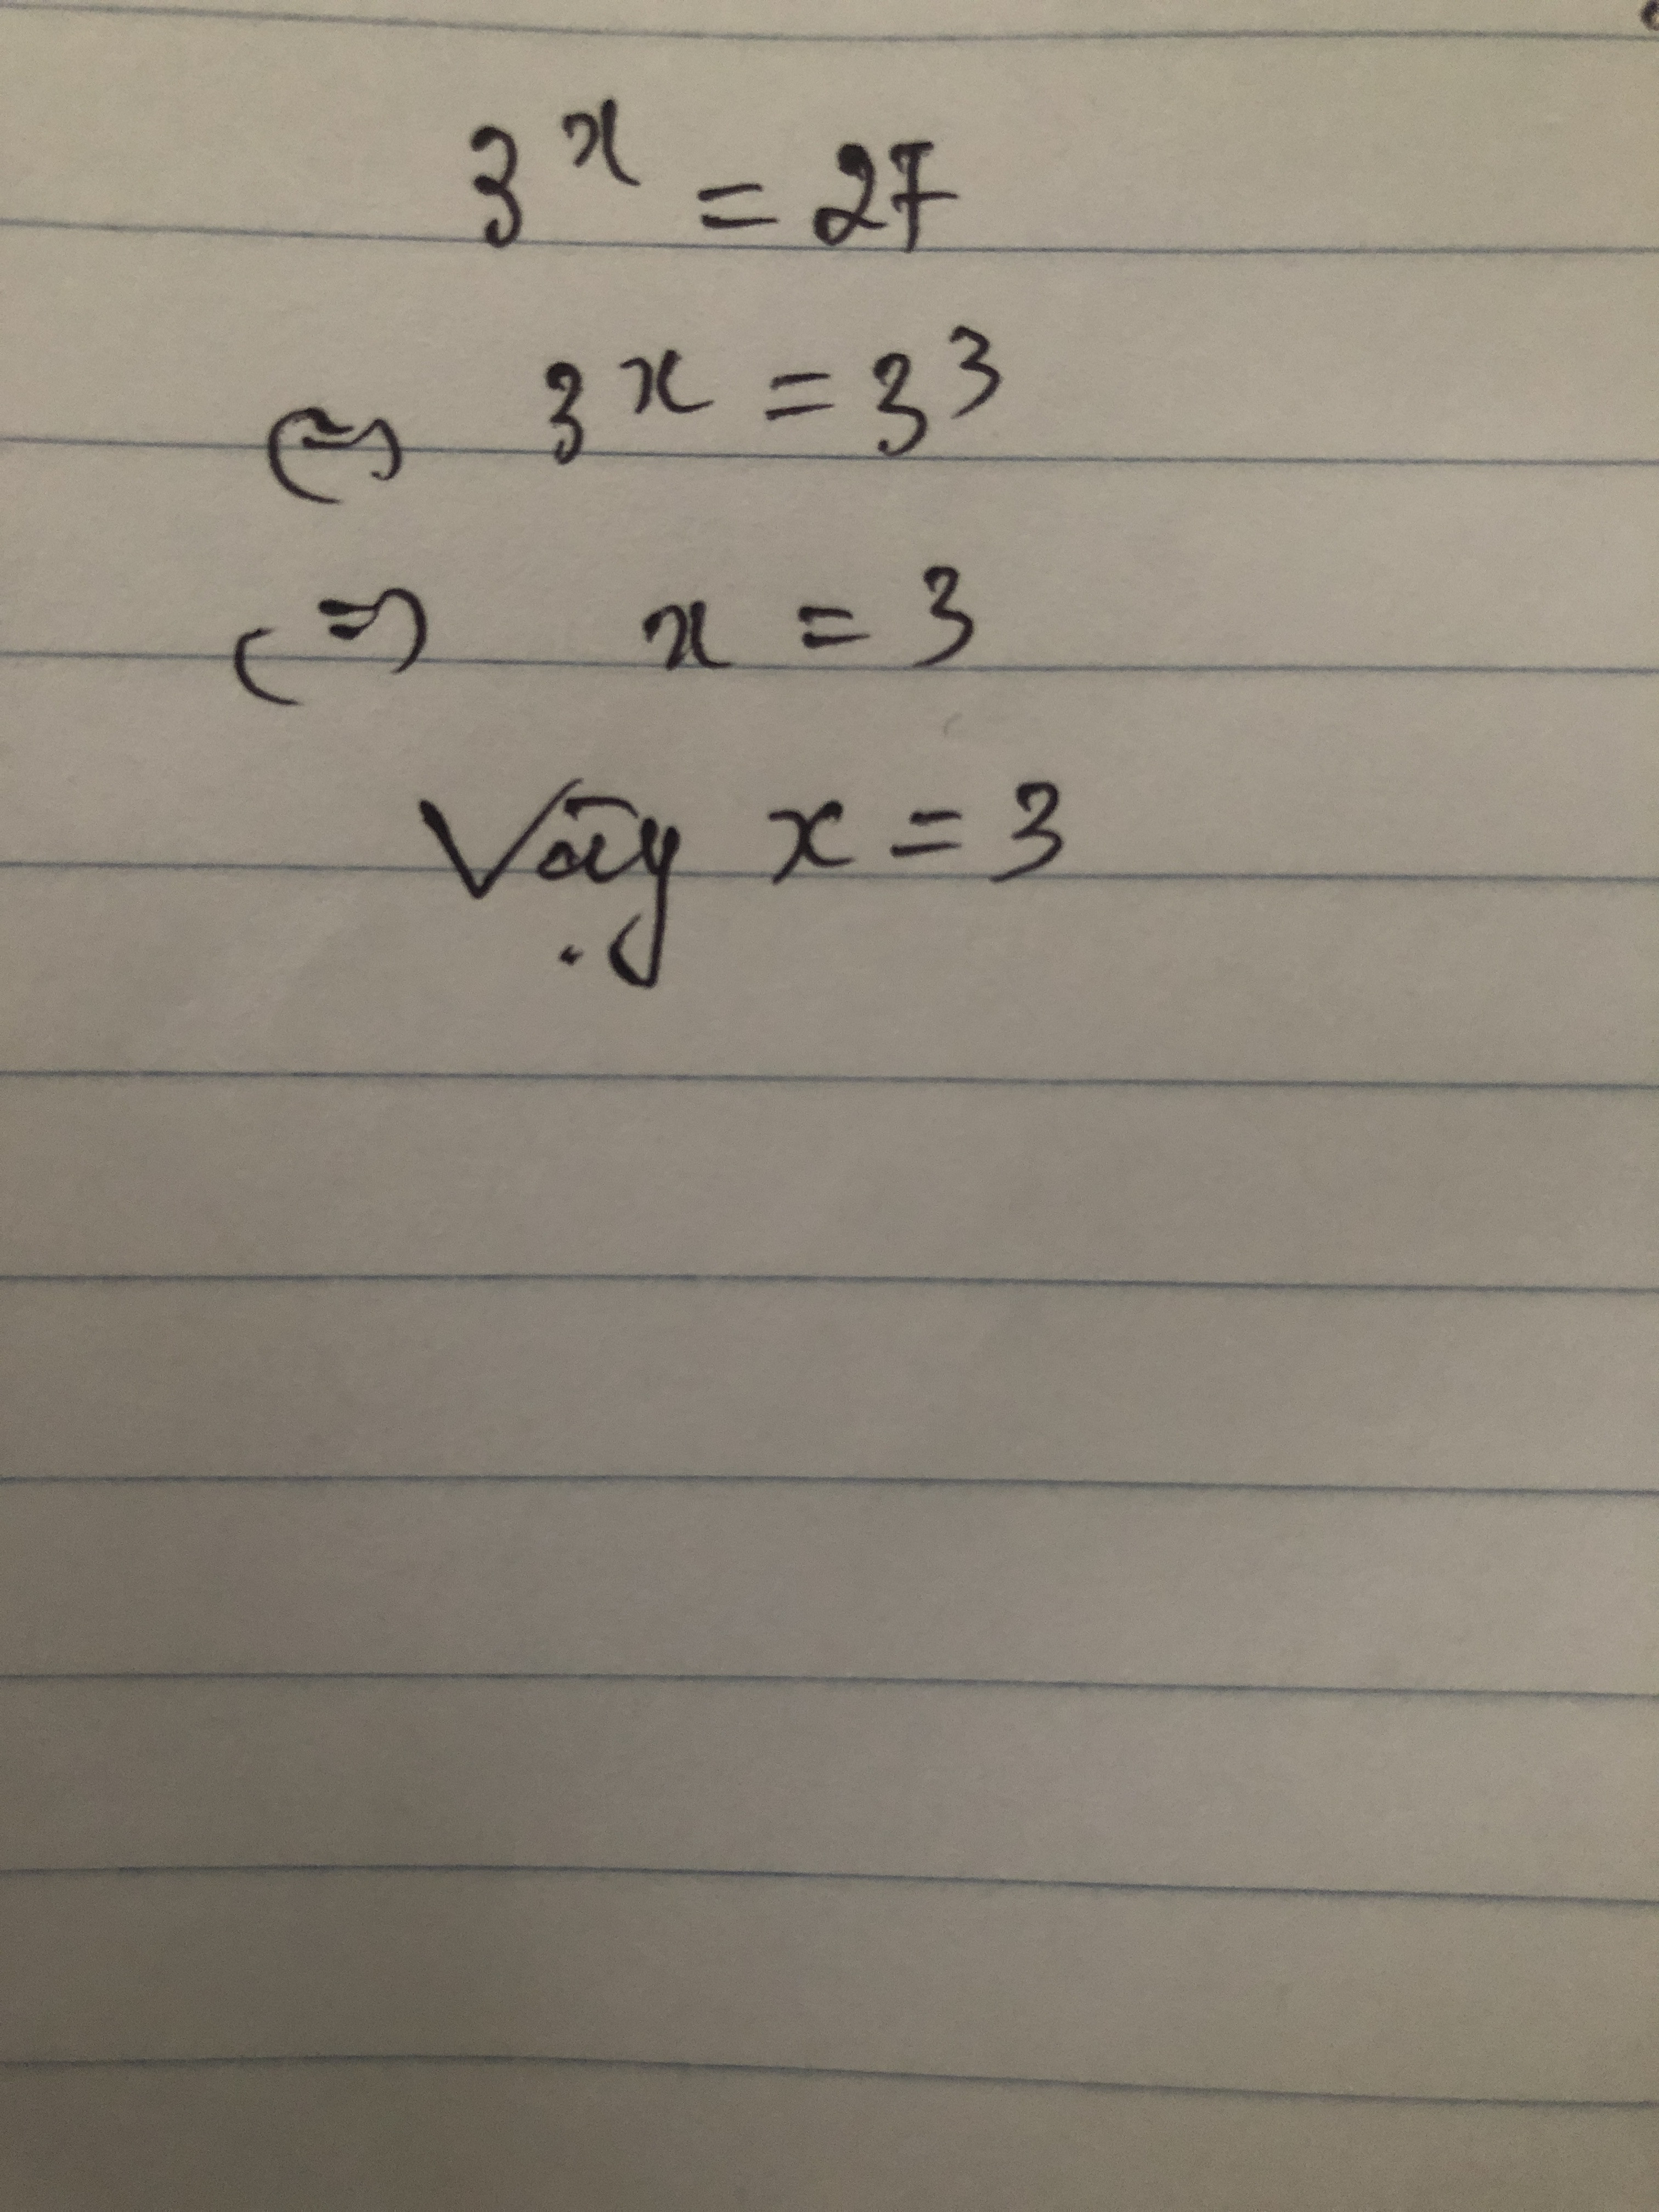 3^x = 27
⇔ 3^x = 3^3
⇔ x = 3
Vậy x = 3